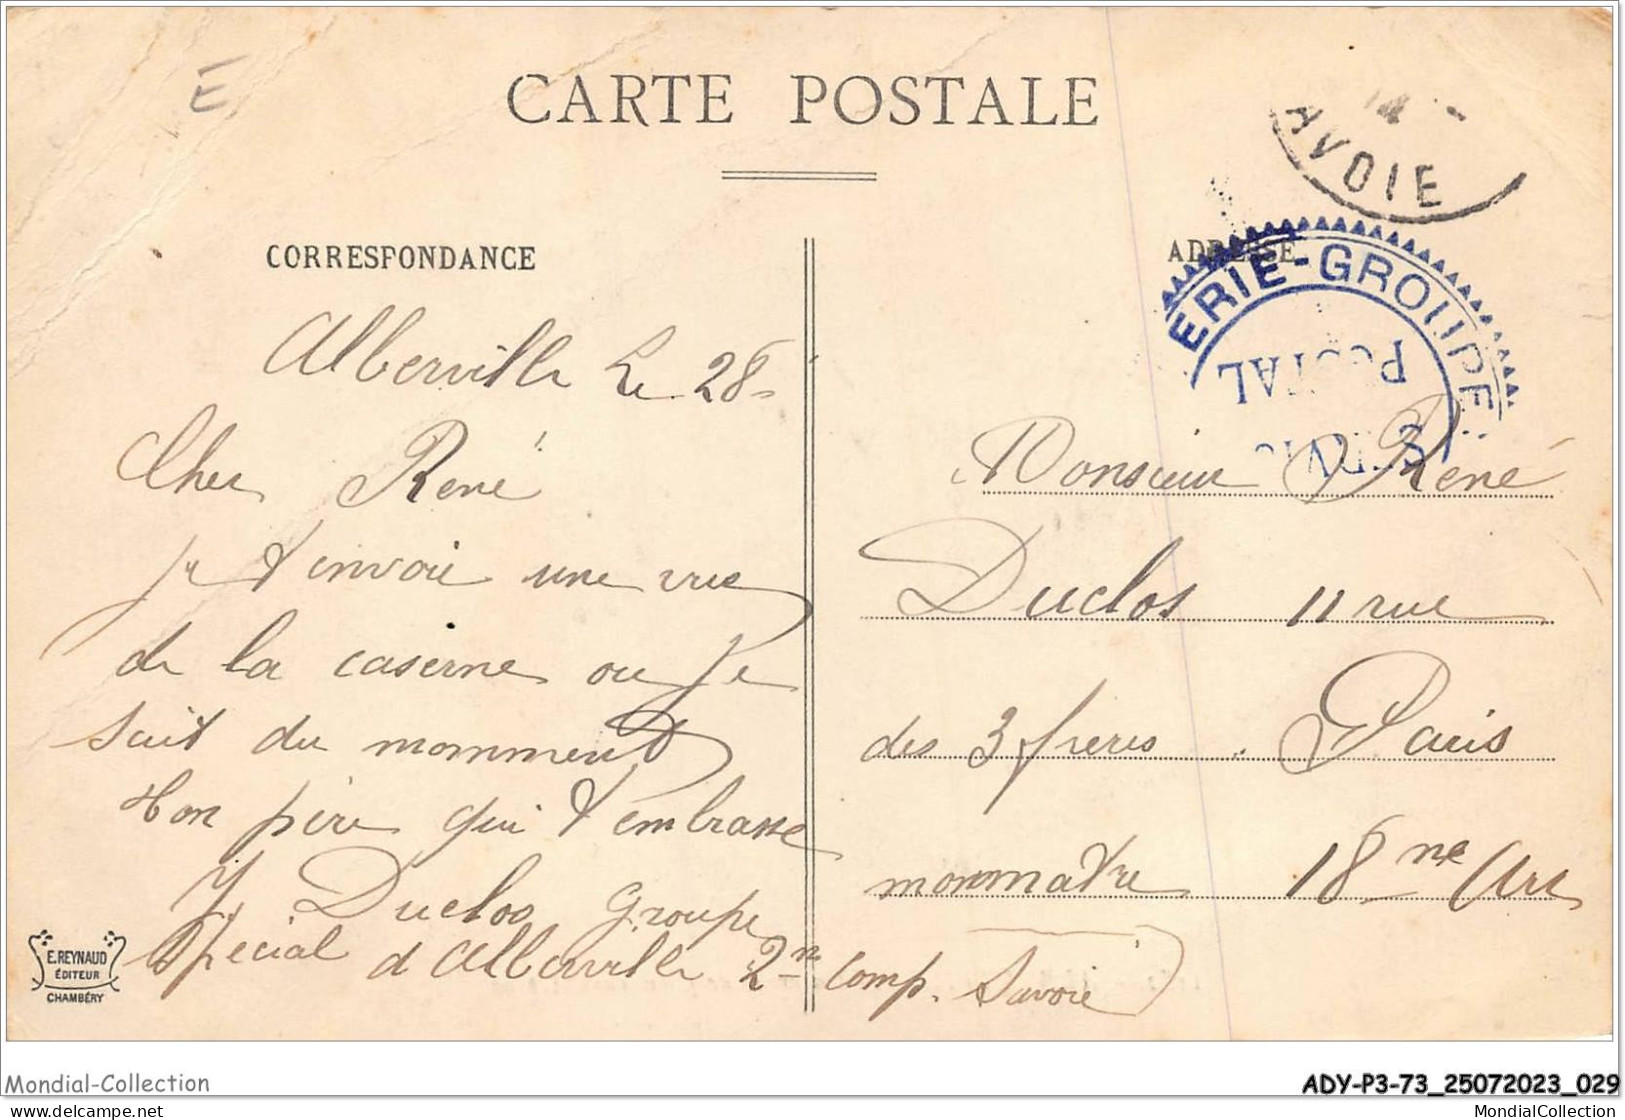 E
CARTE POSTALE
14
AVOIE
CORRESPONDANCE
ADRESSE
ERIE-GROUPE
POSTAL
Alberville Le 28
Cher René
je t'envoie une vue
de la caserne ou Je
suit du momment
ton père qui t'embrasse
J Duclos Groupe
Spécial d Alberville 2me Comp. Savoie
Monsieur René
Duclos 11 rue
des 3 frères. Paris
monmatre 18me Arr
E. REYNAUD
ÉDITEUR
CHAMBÉRY
Mondial-Collection
ADY-P3-73_25072023_029
my name is test
MondialCollection